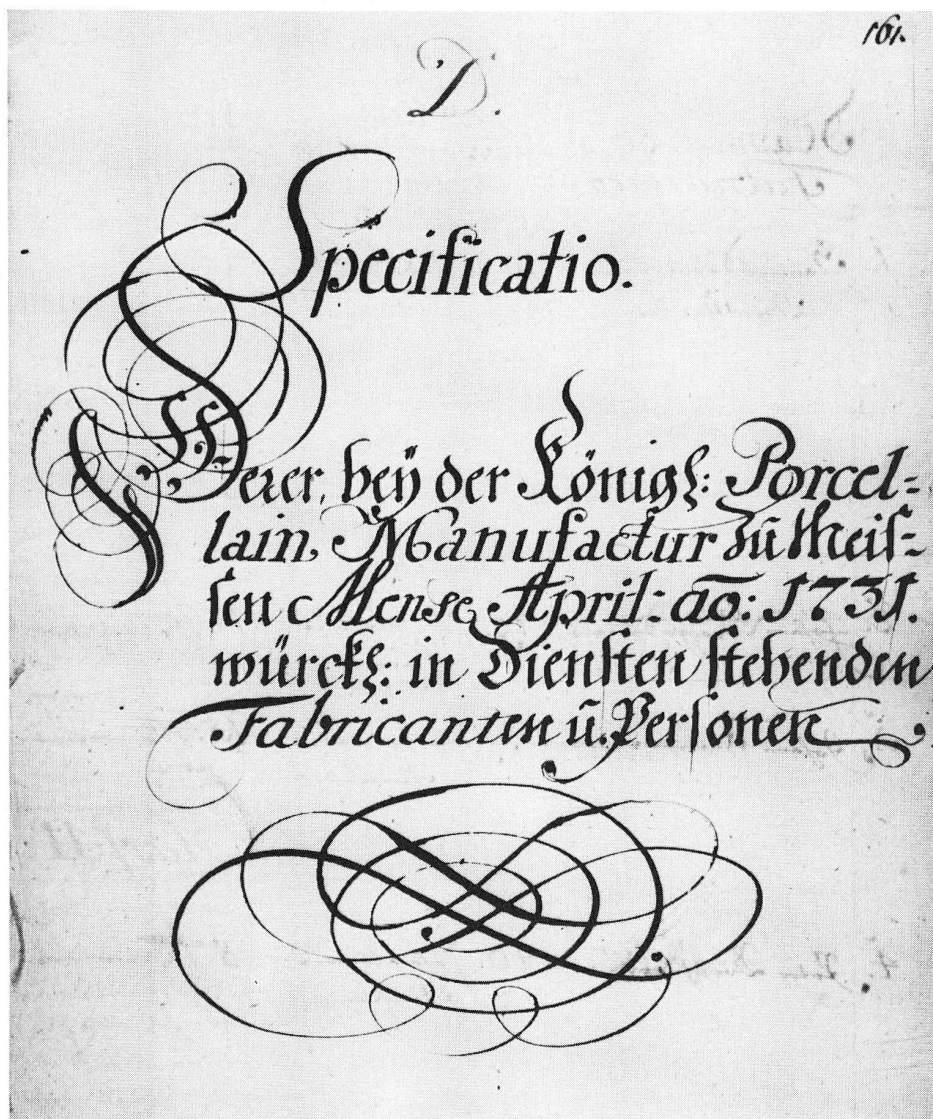 161.
D.
Specificatio.
Derer, beÿ der Königl: Porcel=
lain, Manufactur zu Meis=
sen Mense, April: ao: 1731.
würckl: in Diensten stehenden
Fabricanten ū. Personen